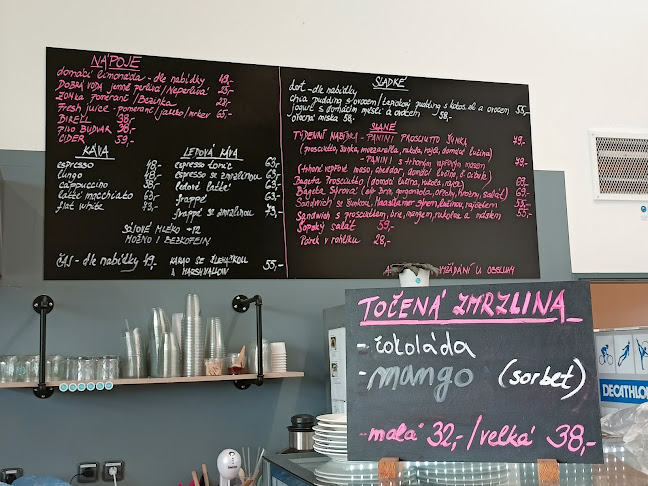 NÁPOJE
domácí limonáda - dle nabídky 49,-
DOBRÁ VODA jemně perlivá/neperlivá 25,-
ZONKA pomeranč/Bezinka
Fresh juice - pomeranč/jablko/mrkev 65,-
BIRELL 38,-
PIVO BUDVAR 38,-
CIDER 59,-
KÁVA
espresso 48,-
lungo 48,-
cappuccino
latté macchiato
flat white
LEDOVÁ KÁVA
espresso tonic 69,-
espresso se zmrzlinou 69,-
ledové latté 69,-
frappé 69,-
frappé se zmrzlinou 79,-
SÓJOVÉ MLÉKO +12
MOŽNO I BEZKOFEIN
ČAS - dle nabídky 49,-
KAKAO SE ŠLEHAČKOU
A MARSHMALLOW 55,-
SLADKÉ
dort - dle nabídky
chia pudding s ovocem/tapiokový pudding s kokos. ml. a ovocem 55,-
jogurt s domácím müsli a ovocem 58,-
ovocná miska 58,-
SLANÉ
TÝDENNÍ NABÍDKA - PANINI PROSCIUTTO ŠUNKA 79,-
(prosciutto, šunka, mozzarella, rukola, rajče, domácí lučina)
- PANINI s trhaným vepřovým masem 79,-
(trhané vepřové maso, cheddar, domácí lučina, č. cibule)
Bageta Prosciutto (domácí lučina, rukola, rajče) 69,-
Bageta Sýrová (sýr brie, gorgonzola, ořechy, hrozny, salát) 69,-
Sandwich se šunkou, Maasdamer sýrem, lučinou, rajčetem 55,-
Sandwich s prosciuttem, brie, mangem, rukolou a máslem 55,-
Šopský salát 59,-
Párek v rohlíku 28,-
VYŽÁDÁNÍ U OBSLUHY
TOČENÁ ZMRZLINA
- čokoláda
- mango (sorbet)
- malá 32,-/velká 38,-
DECATHLON